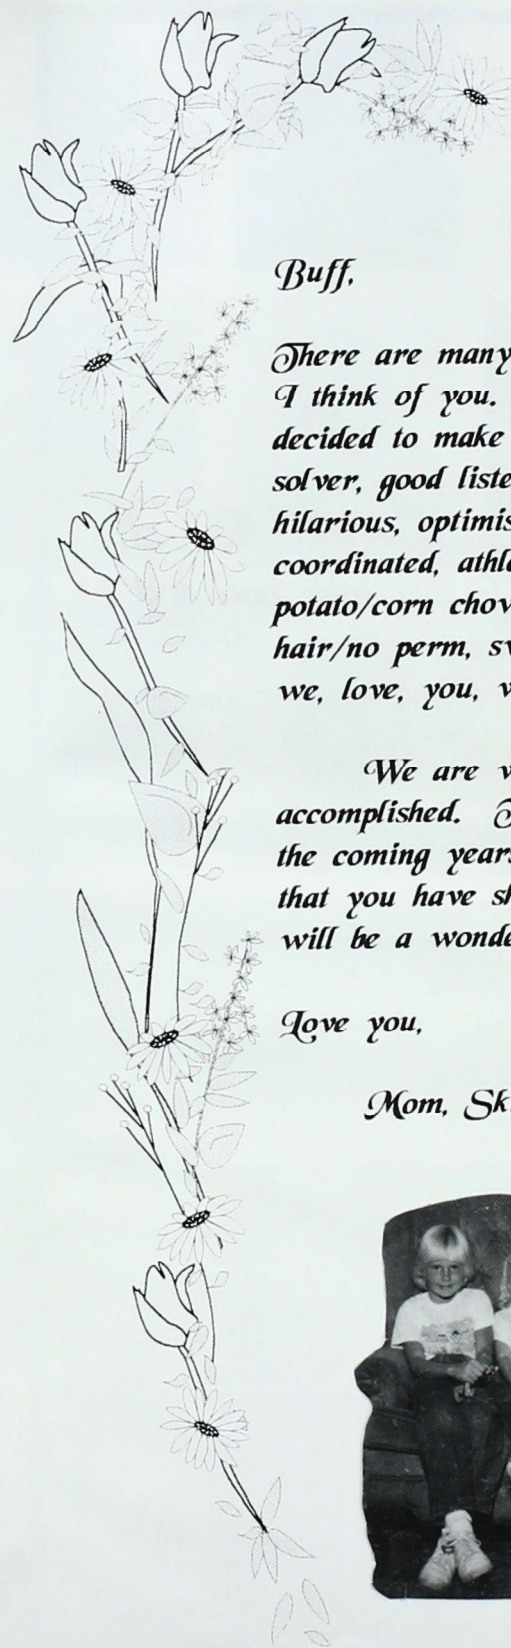 Buff,
There are many
I think of you.
decided to make
solver, good liste
hilarious, optimis
coordinated, athle
potato/corn chow
hair/no perm, sw
we, love, you, v
We are v
accomplished. T
the coming years
that you have sh
will be a wonde
Love you,
Mom, Sk